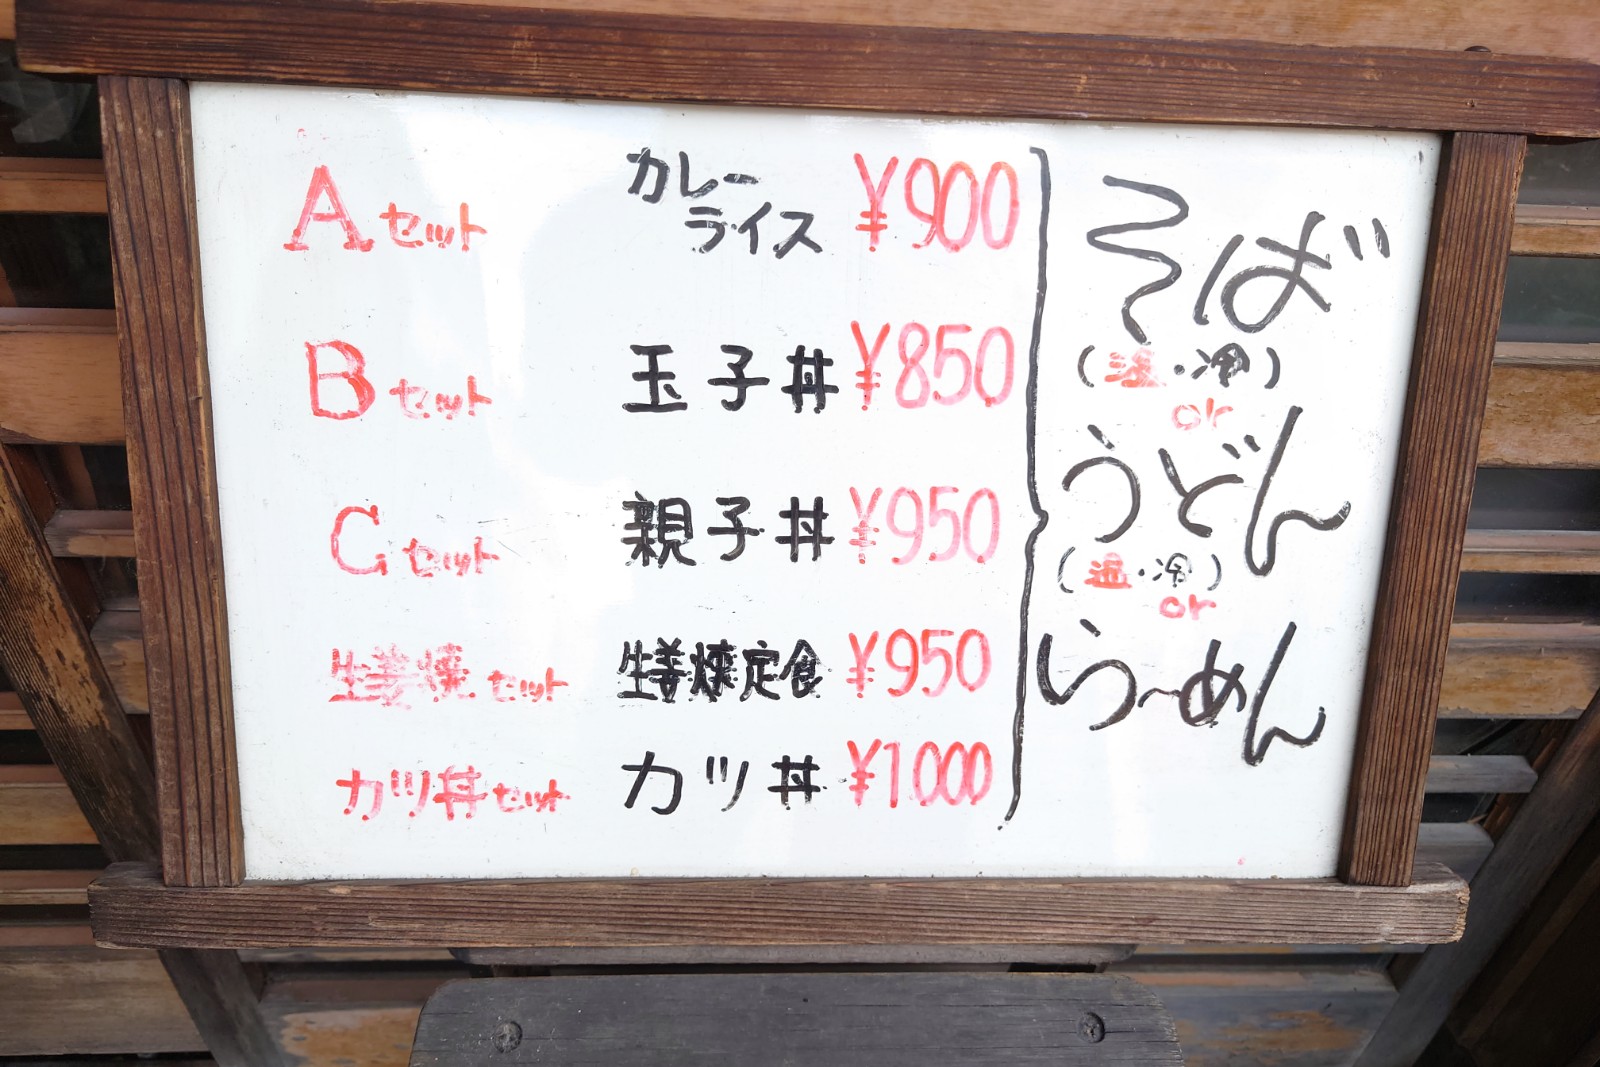 Aセット カレーライス ¥900
Bセット 玉子丼 ¥850
Cセット 親子丼 ¥950
生姜焼セット 生姜焼定食 ¥950
カツ丼セット カツ丼 ¥1000
そば
(温・冷)
or
うどん
(温・冷)
or
らーめん